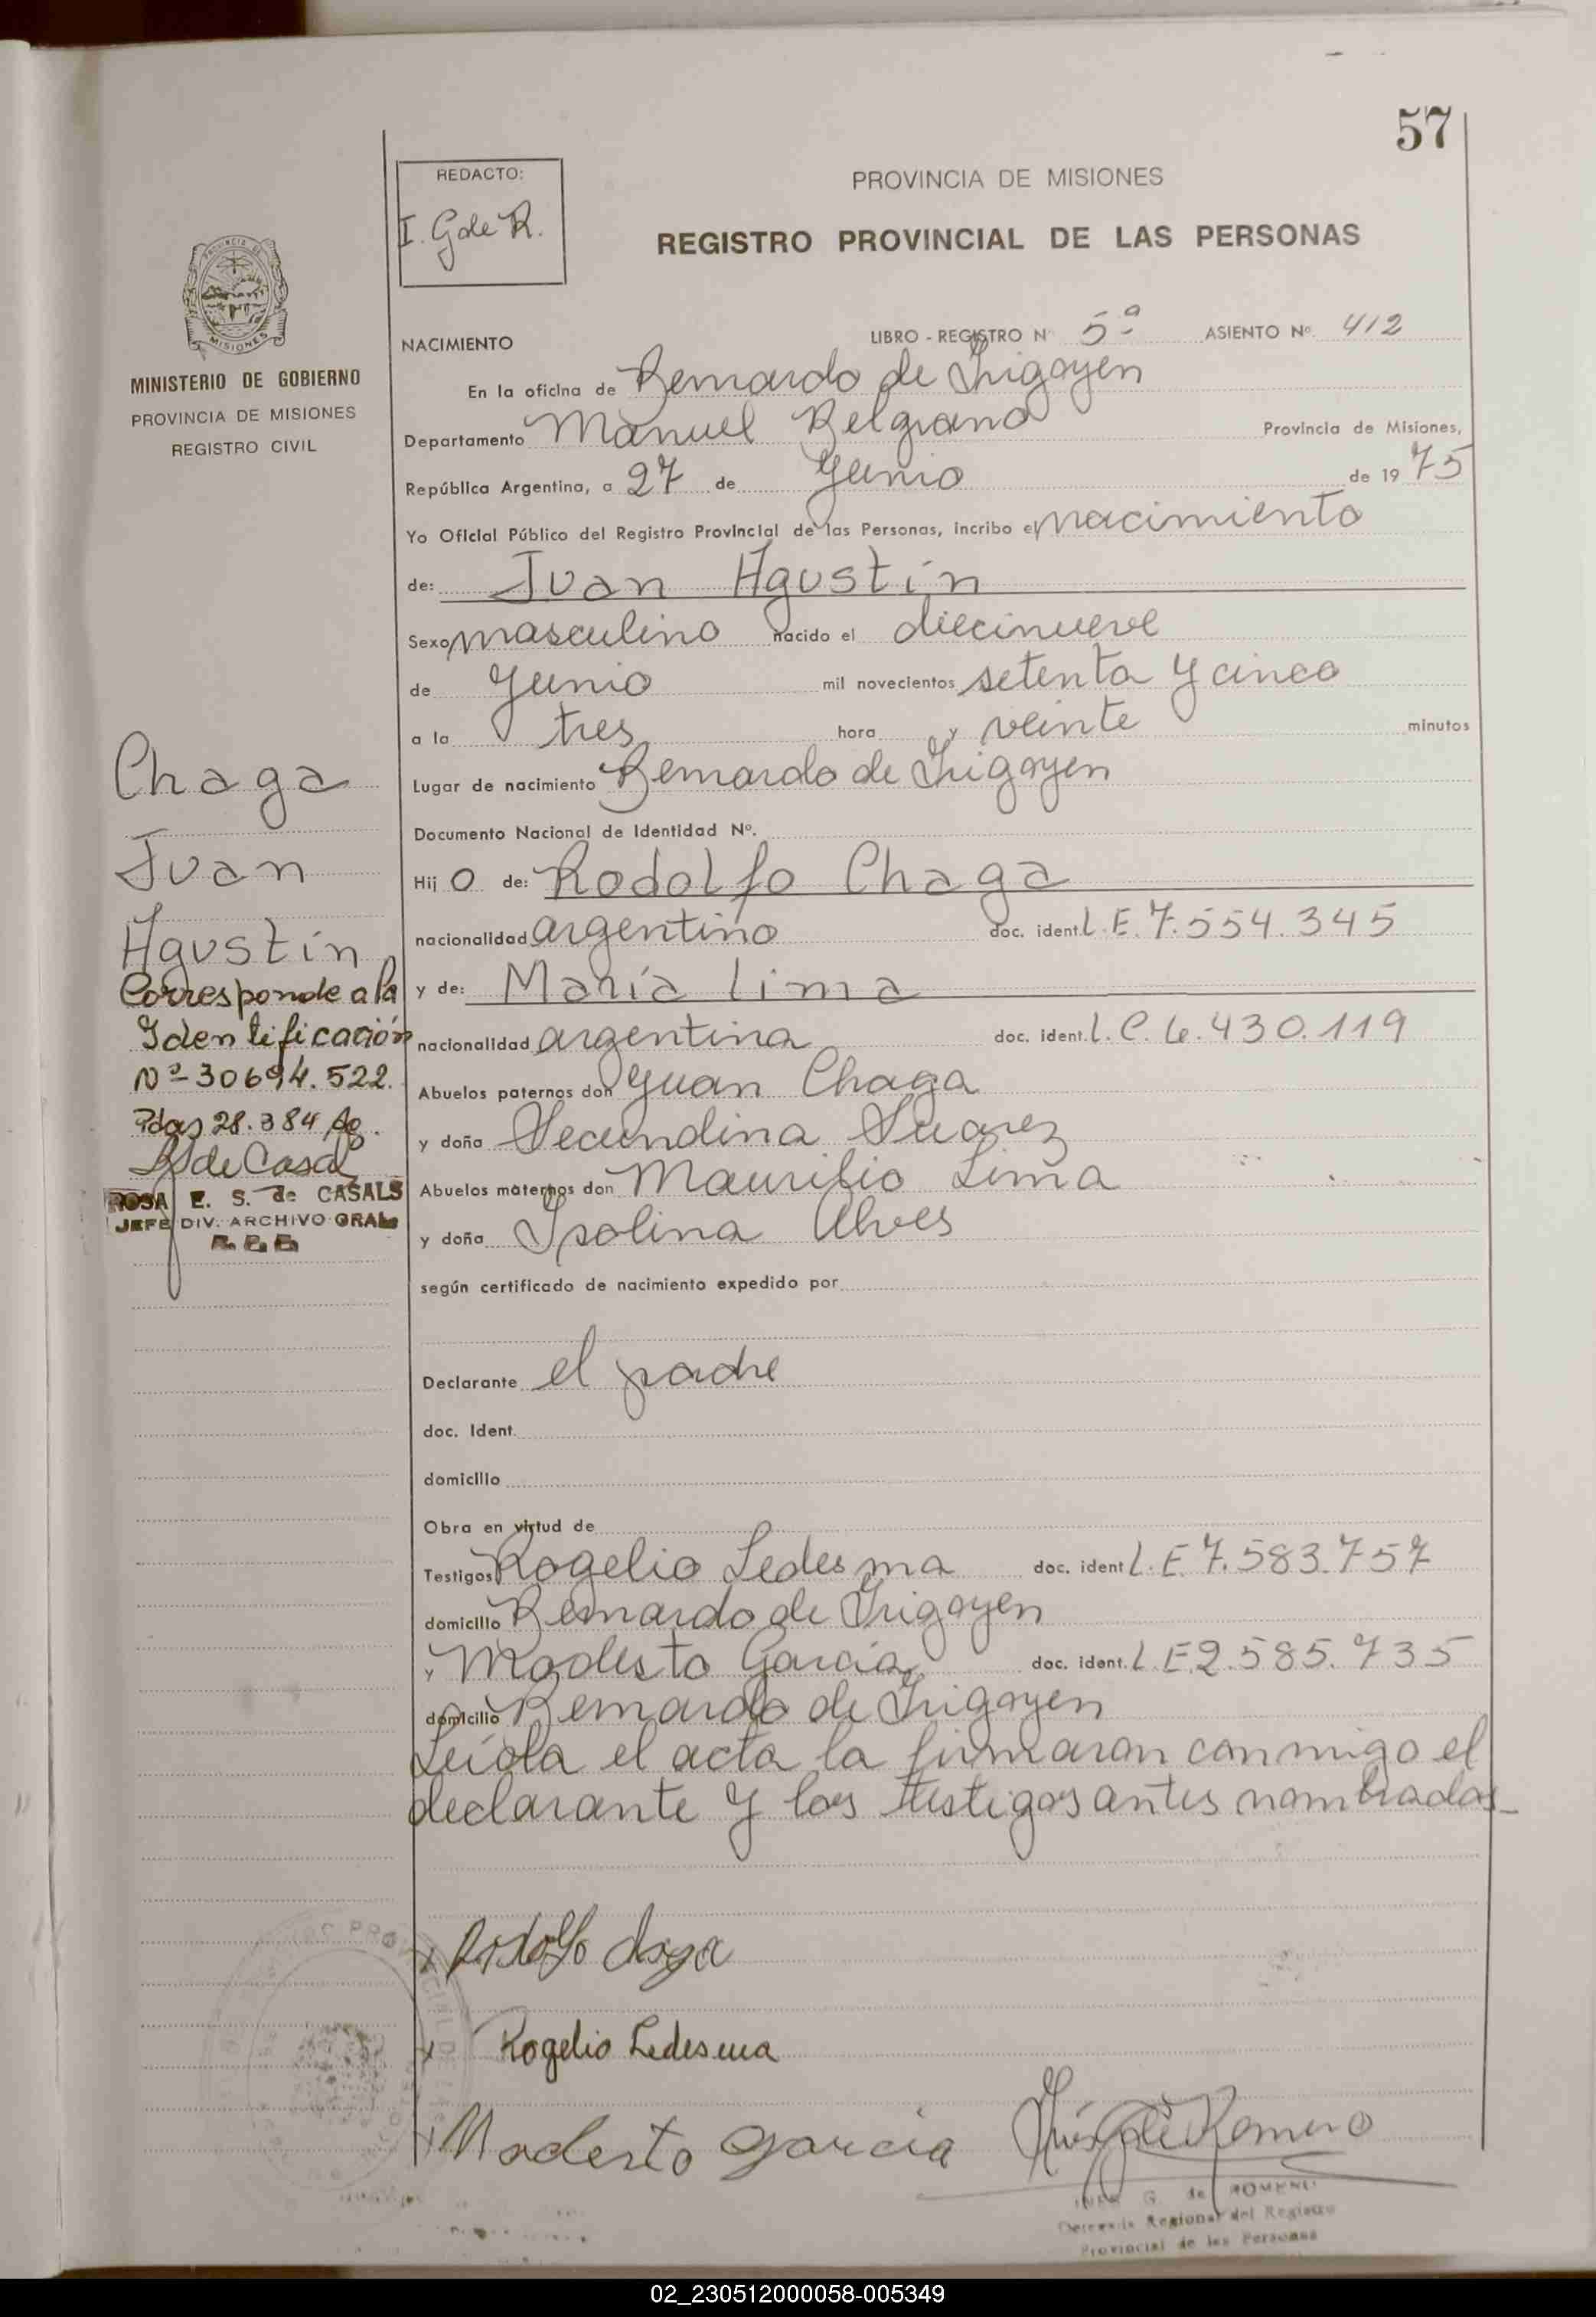 57
REDACTO:
I. G de R.
PROVINCIA DE MISIONES
REGISTRO PROVINCIAL DE LAS PERSONAS
PROVINCIA DE
MISIONES
MINISTERIO DE GOBIERNO
PROVINCIA DE MISIONES
REGISTRO CIVIL
NACIMIENTO LIBRO - REGISTRO N° 5º ASIENTO Nº. 412
En la oficina de Bernardo de Irigoyen
Departamento Manuel Belgrano Provincia de Misiones,
República Argentina, a 27 de Junio de 19 75
Yo Oficial Público del Registro Provincial de las Personas, incribo el nacimiento
de: Juan Agustín
Sexo masculino nacido el diecinueve
de Junio mil novecientos setenta y cinco
a la tres hora y veinte minutos
Lugar de nacimiento Bernardo de Irigoyen
Documento Nacional de Identidad Nº.
Hij o de: Rodolfo Chaga
nacionalidad argentino doc. ident. L.E. 7.554.345
y de: María Lima
nacionalidad argentina doc. ident. L.C. 6.430.119
Abuelos paternos don Juan Chaga
y doña Secundina Suarez
Abuelos maternos don Maurilio Lima
y doña Isolina Alves
según certificado de nacimiento expedido por
Declarante el padre
doc. Ident.
domicilio
Obra en virtud de
Testigos Rogelio Ledesma doc. ident L.E. 7.583.757
domicilio Bernardo de Irigoyen
y Modesto García doc. ident. L.E 2.585.735
domicilio Bernardo de Irigoyen
Leída el acta la firmaron conmigo el
declarante y los testigos antes nombrados_
Chaga
Juan
Agustín
Corresponde a la
Identificación
Nº-30694.522.
Pdas 28.384
ROSA E. S. de CASALS
JEFE DIV. ARCHIVO GRAL
x Rodolfo Chaga
x Rogelio Ledesma
x Modesto Garcia
Inés G de Romero
INES G. de ROMERO
Regional del Registro
Provincial de las Personas
02_230512000058-005349